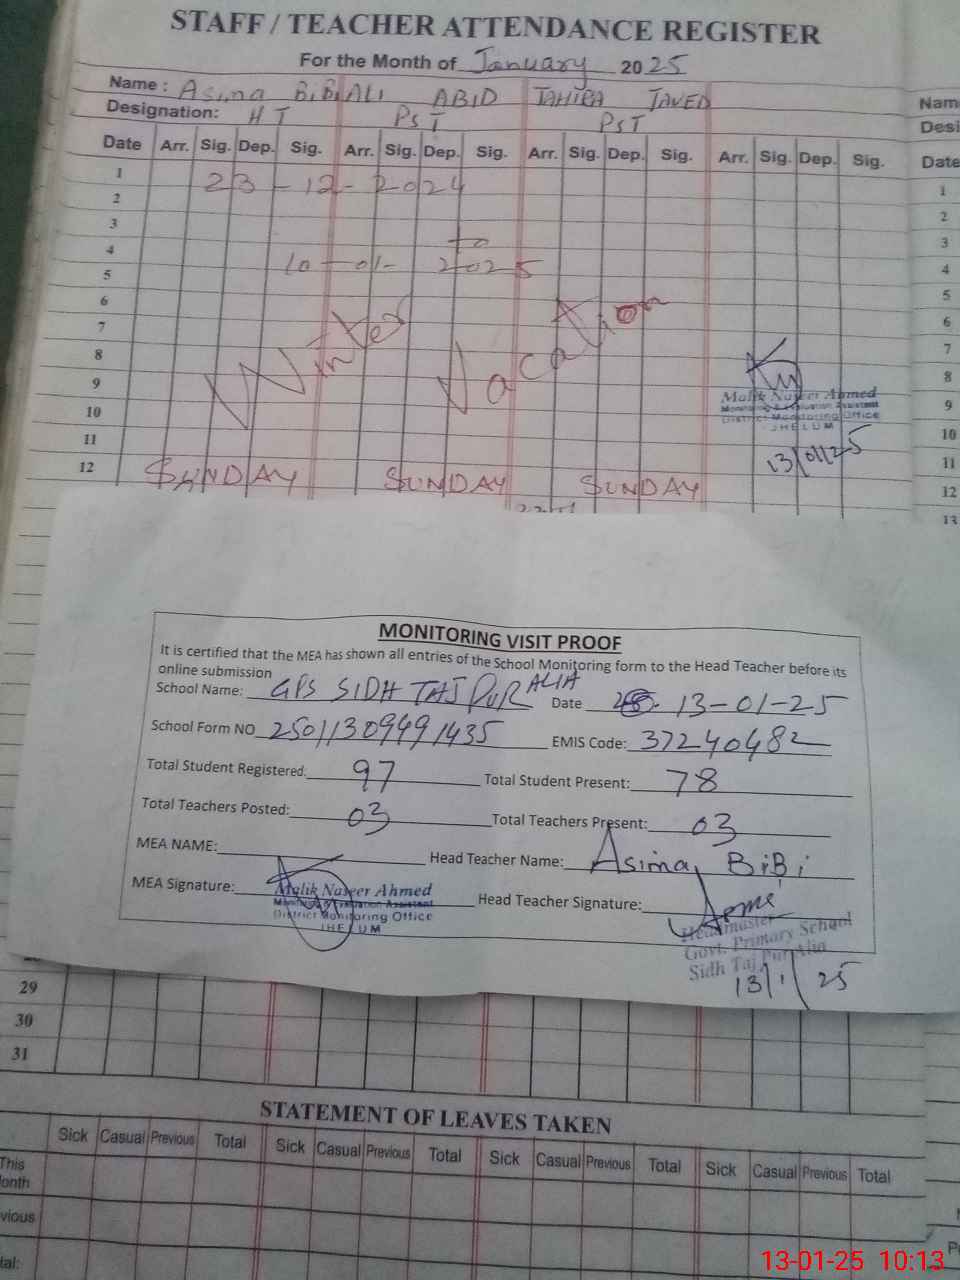 STAFF / TEACHER ATTENDANCE REGISTER
For the Month of January 2025
Name: Asima BiBi ALI ABID TAHIRA JAVED
Designation: HT PST PST
Date Arr. Sig. Dep. Sig. Arr. Sig. Dep. Sig. Arr. Sig. Dep. Sig. Arr. Sig. Dep. Sig.
Nam
Desi
Date
1 23-12-2024 1
2 2
3 to 3
4 10-01-2025 4
5 5
6 6
7 Winter Vacation 7
8 8
9 9
10 10
11 11
12 SUNDAY SUNDAY SUNDAY 12
13
Malik Naseer Ahmed
Monitoring & Evaluation Assistant
District Monitoring Office
JHELUM
13/01/25
MONITORING VISIT PROOF
It is certified that the MEA has shown all entries of the School Monitoring form to the Head Teacher before its
online submission
School Name: GPS SIDH TAJ PUR ALIA Date 13-01-25
School Form NO EMIS Code: 37240482
Total Student Registered: 97 Total Student Present: 78
Total Teachers Posted: 03 Total Teachers Present: 03
MEA NAME: Head Teacher Name: Asima BiBi
MEA Signature: Head Teacher Signature:
Malik Naseer Ahmed
Monitoring & Evaluation Assistant
District Monitoring Office
JHELUM
Headmaster
Govt. Primary School
Sidh Taj Pur Alia
13/1/25
29
30
31
STATEMENT OF LEAVES TAKEN
Sick Casual Previous Total Sick Casual Previous Total Sick Casual Previous Total Sick Casual Previous Total
This
onth
vious
tal:
13-01-25 10:13